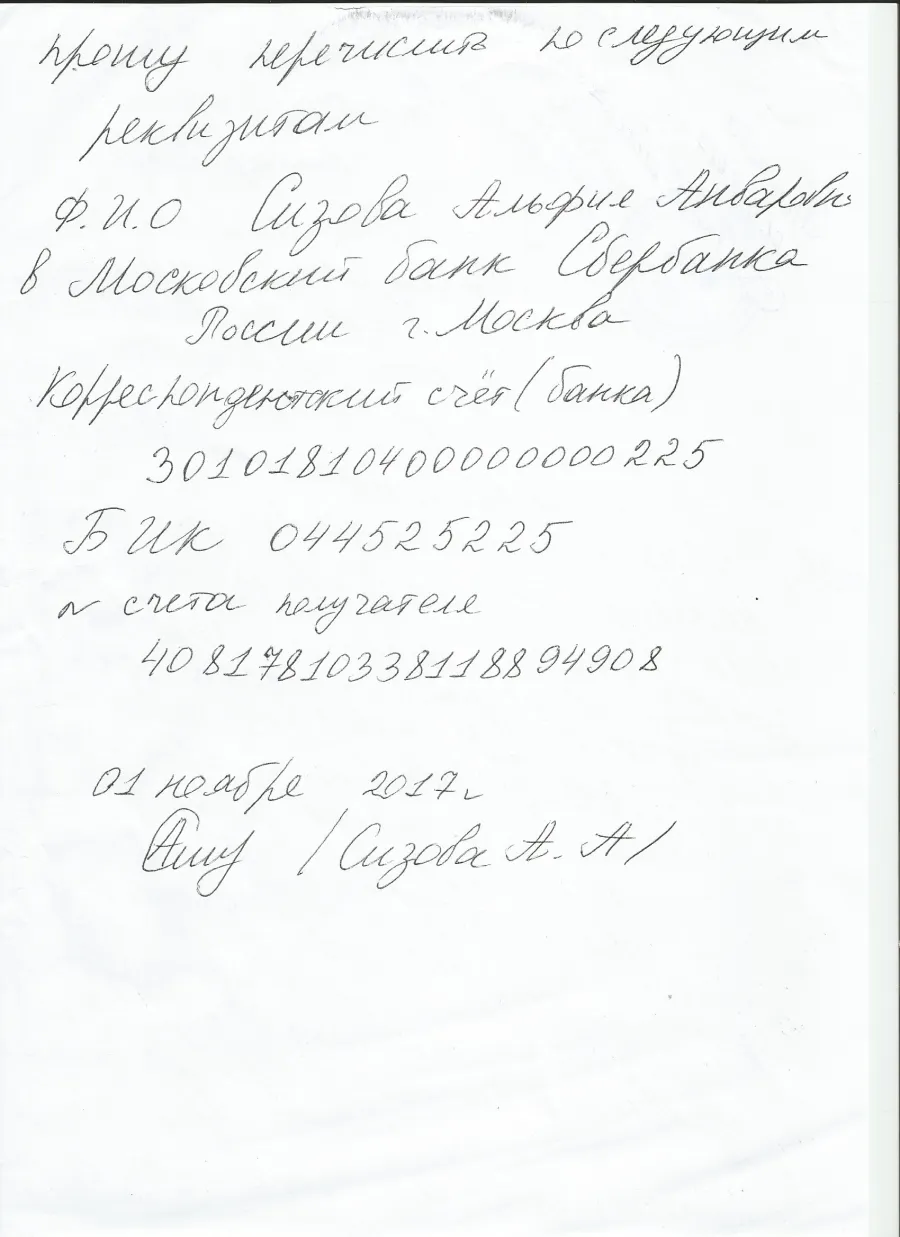 прошу перечислить по следующим
реквизитам
Ф.И.О Сизова Альфия Анваровн
в Московский банк Сбербанка
России г. Москва
Корреспондентский счёт (банка)
30101810400000000225
БИК 044525225
№ счета получателя
40817810338118894908
01 ноября 2017г
/Сизова А. А/